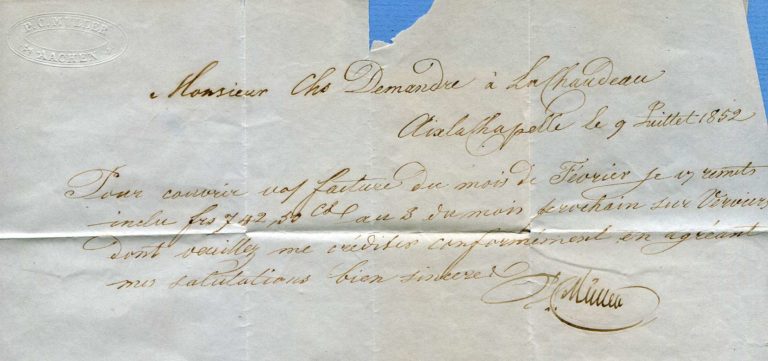 P. C. MÜLLER
AACHEN
Monsieur Chs Demandre à La Chaudeau
Aix la Chapelle le 9 Juillet 1852
Pour couvrir vos facture du mois de Février je v remets
inclu frs 742, 50 cts au 8 du mois prochain sur Verviers
dont veuillez me créditer conformément en agréant
mes salutations bien sincères
P. C. Müller